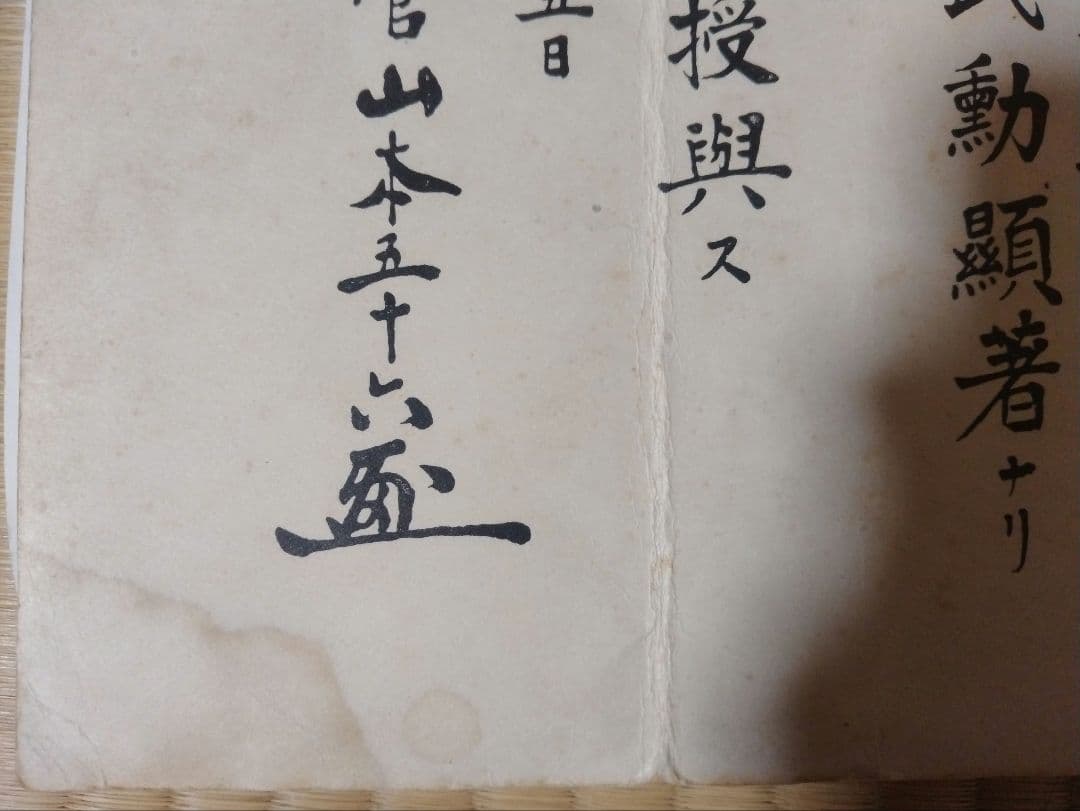 武勳顯著ナリ
授與ス
五日
官山本五十六